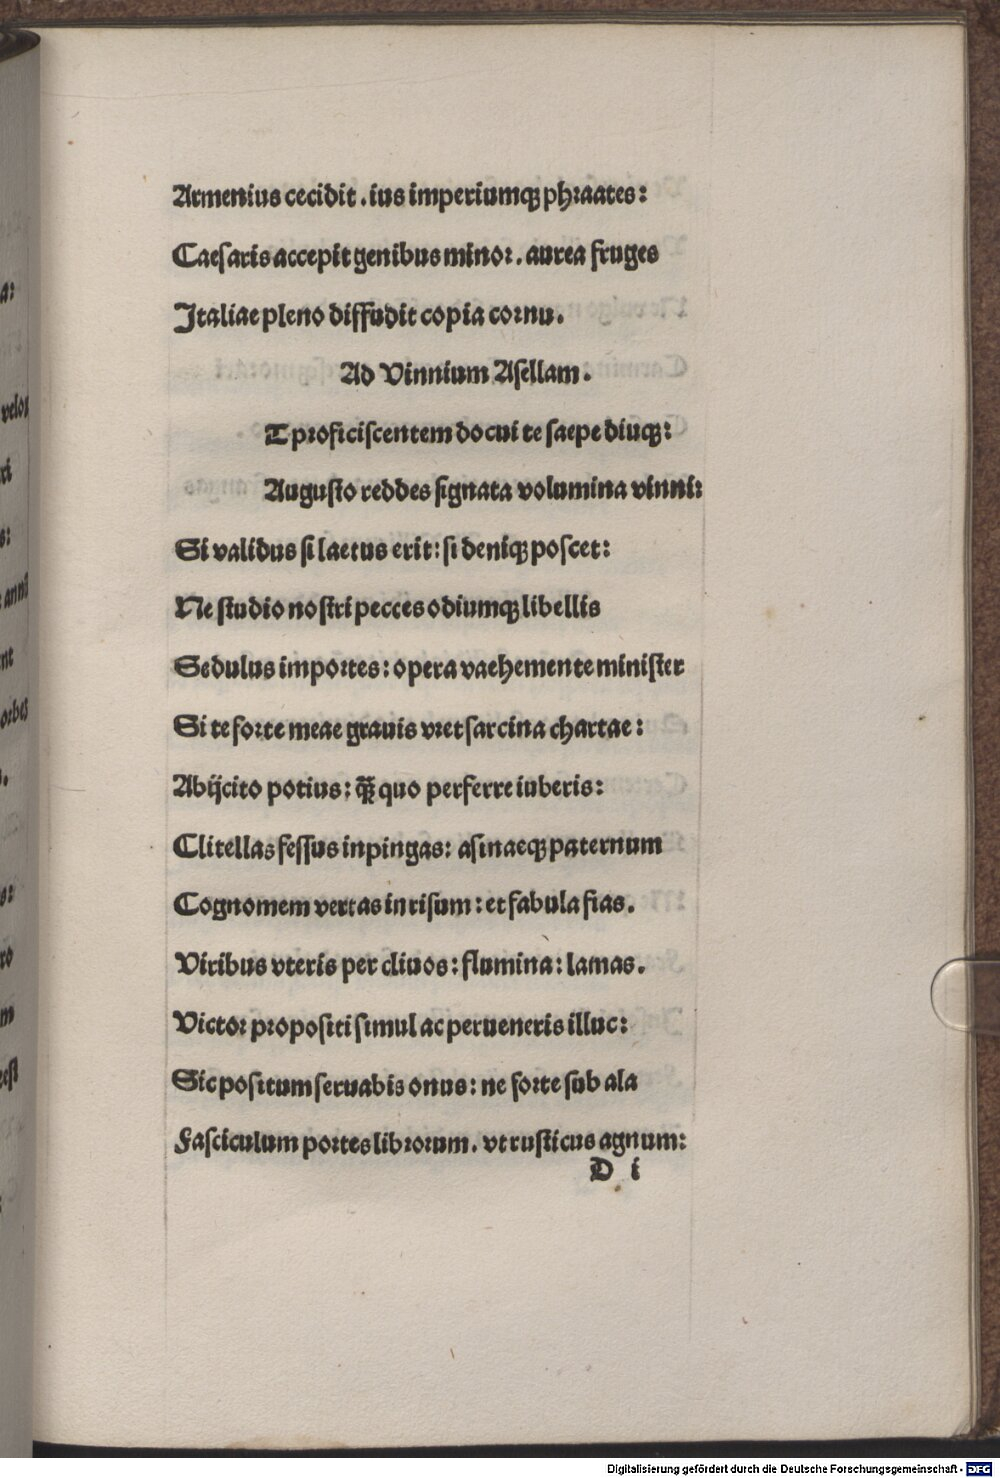 Armenius cecidit . ius imperiumqꝫ phraates:
Caesaris accepit genibus minor . aurea fruges
Italiae pleno diffudit copia cornu .
Ad Vinnium Asellam .
T proficiscentem docui te saepe diuqꝫ:
Augusto reddes signata volumina vinni:
Si validus si laetus erit: si deniqꝫ poscet:
Ne studio nostri pecces odiumqꝫ libellis
Sedulus importes: opera vaehemente minister
Si te forte meae grauis vret sarcina chartae:
Abijcito potius: qꝫ̃ quo perferre iuberis:
Clitellas fessus inpingas: asinaeqꝫ paternum
Cognomem vertas in risum: et fabula fias.
Viribus vteris per cliuos: flumina: lamas.
Victor propositi simul ac perueneris illuc:
Sic positum seruabis onus: ne forte sub ala
Fasciculum portes librorum. vt rusticus agnum:
D i
a:
velox
ri
s:
ann
nt
orbes
.
s:
ro
m
est
:
Digitalisierung gefördert durch die Deutsche Forschungsgemeinschaft - DFG